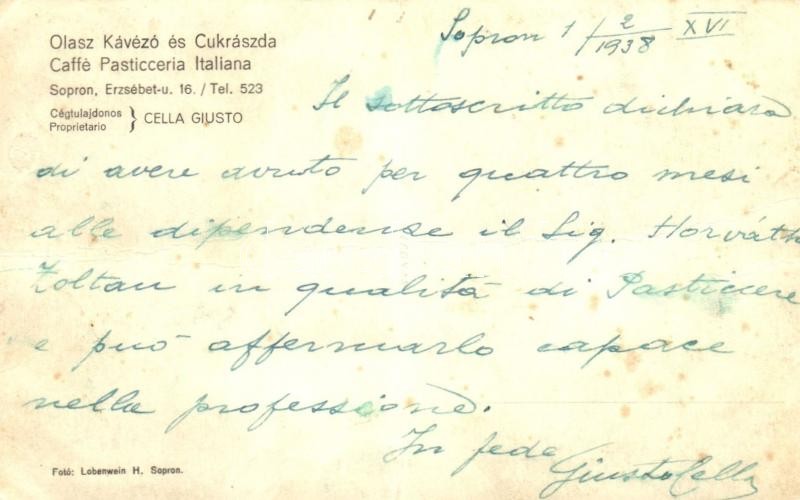 Olasz Kávézó és Cukrászda
Caffè Pasticceria Italiana
Sopron, Erzsébet-u. 16. / Tel. 523
Cégtulajdonos
Proprietario } CELLA GIUSTO
Sopron 1/2/1938 XVI
Il sottoscritto dichiara
di avere avuto per quattro mesi
alle dipendense il Sig. Horváth
Zoltan in qualitá di Pasticcere
e puó affermarlo capace
nella professione.
In fede
Giusto Cella
Fotó: Lobenwein H. Sopron.